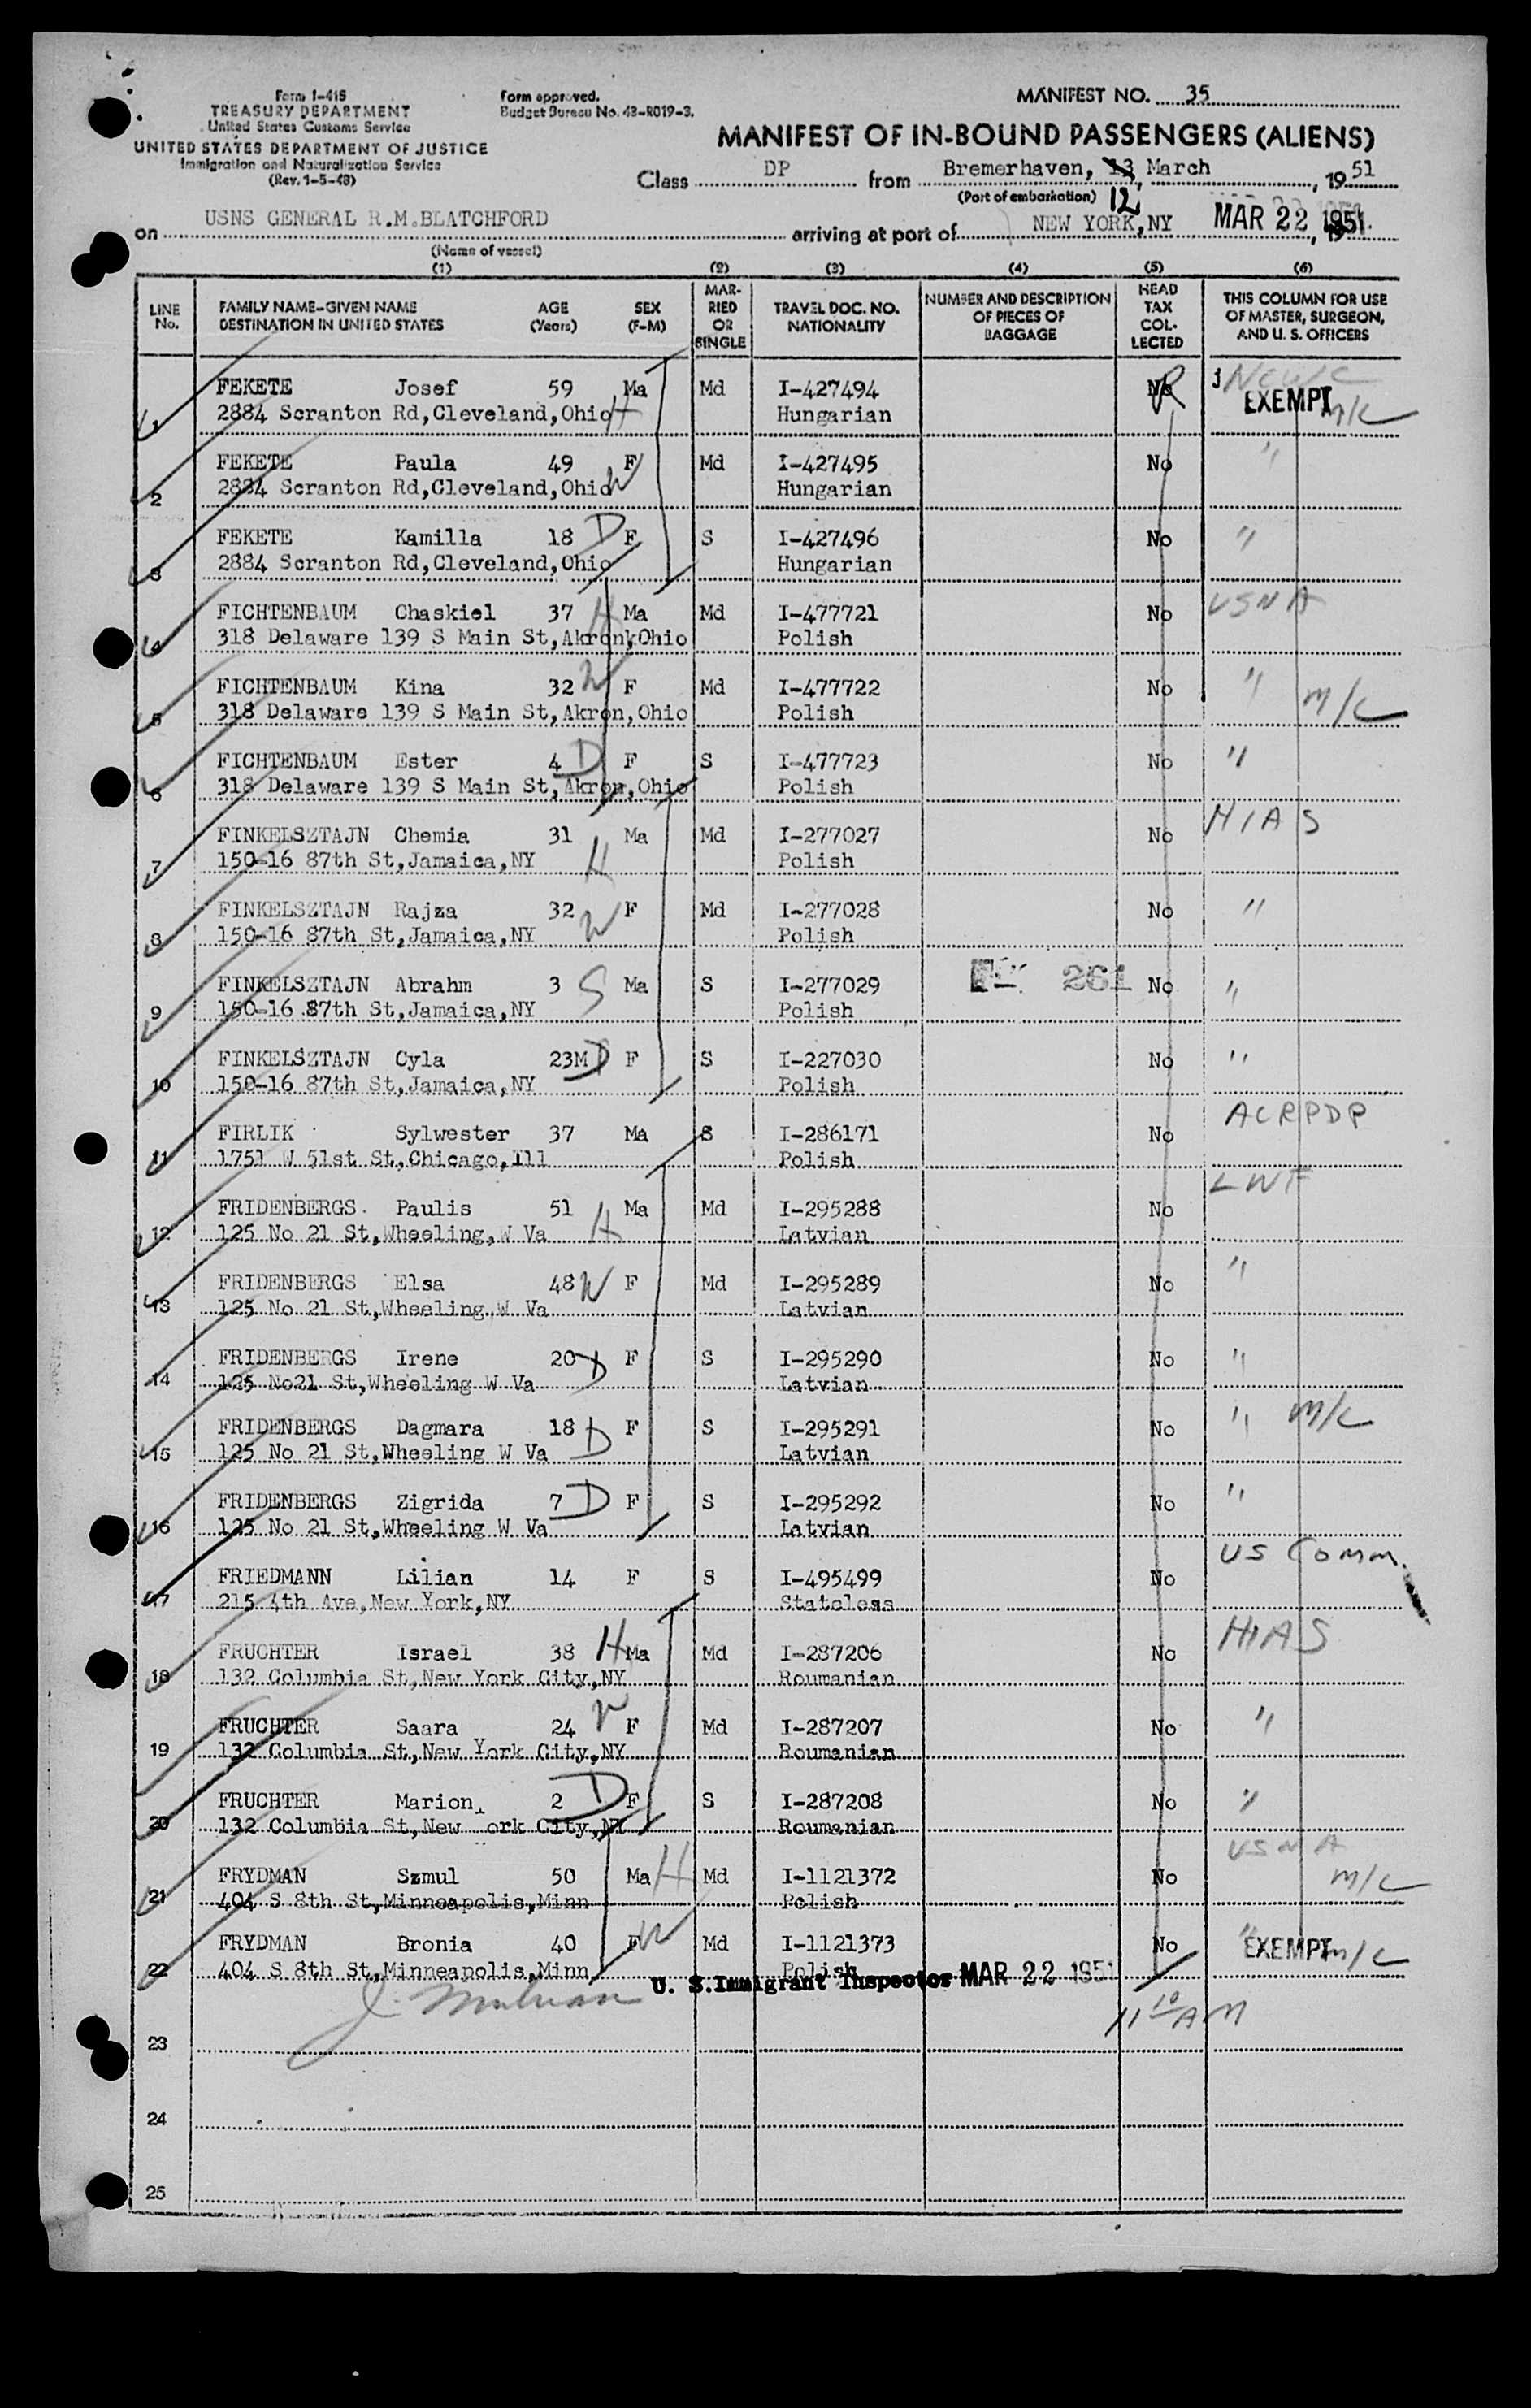 Form I-415
TREASURY DEPARTMENT
United States Customs Service
UNITED STATES DEPARTMENT OF JUSTICE
Immigration and Naturalization Service
(Rev. 1-5-48)
Form approved.
Budget Bureau No. 43-R019-3.
MANIFEST NO. 35
MANIFEST OF IN-BOUND PASSENGERS (ALIENS)
Class DP from Bremerhaven, 13 March, 1951
(Port of embarkation) 12
on USNS GENERAL R.M.BLATCHFORD arriving at port of NEW YORK,NY MAR 22 1951, 19
(Name of vessel)
(1) (2) (3) (4) (5) (6)
LINE No. FAMILY NAME-GIVEN NAME DESTINATION IN UNITED STATES AGE (Years) SEX (F-M) MARRIED OR SINGLE TRAVEL DOC. NO. NATIONALITY NUMBER AND DESCRIPTION OF PIECES OF BAGGAGE HEAD TAX COLLECTED THIS COLUMN FOR USE OF MASTER, SURGEON, AND U. S. OFFICERS
FEKETE Josef 59 Ma Md I-427494 No NCWC
1 2884 Scranton Rd,Cleveland,Ohio H Hungarian R EXEMPT M/C
FEKETE Paula 49 F Md I-427495 No "
2 2884 Scranton Rd,Cleveland,Ohio W Hungarian
FEKETE Kamilla 18 D F S I-427496 No "
3 2884 Scranton Rd,Cleveland,Ohio Hungarian
FICHTENBAUM Chaskiel 37 H Ma Md I-477721 No USNA
4 318 Delaware 139 S Main St,Akron,Ohio Polish
FICHTENBAUM Kina 32 W F Md I-477722 No " M/C
5 318 Delaware 139 S Main St,Akron,Ohio Polish
FICHTENBAUM Ester 4 D F S I-477723 No "
6 318 Delaware 139 S Main St,Akron,Ohio Polish
FINKELSZTAJN Chemia 31 Ma Md I-277027 No HIAS
7 150-16 87th St,Jamaica,NY H Polish
FINKELSZTAJN Rajza 32 W F Md I-277028 No "
8 150-16 87th St,Jamaica,NY Polish
FINKELSZTAJN Abrahm 3 S Ma S I-277029 261 No "
9 150-16 87th St,Jamaica,NY Polish
FINKELSZTAJN Cyla 23M D F S I-227030 No "
10 150-16 87th St,Jamaica,NY Polish
FIRLIK Sylwester 37 Ma S I-286171 No ACRPDP
11 1751 W 51st St,Chicago,Ill Polish
FRIDENBERGS Paulis 51 Ma Md I-295288 No LWF
12 125 No 21 St,Wheeling,W Va H Latvian
FRIDENBERGS Elsa 48 W F Md I-295289 No "
13 125 No 21 St,Wheeling W Va Latvian
FRIDENBERGS Irene 20 D F S I-295290 No "
14 125 No21 St,Wheeling W Va Latvian
FRIDENBERGS Dagmara 18 D F S I-295291 No " M/C
15 125 No 21 St,Wheeling W Va Latvian
FRIDENBERGS Zigrida 7 D F S I-295292 No "
16 125 No 21 St,Wheeling W Va Latvian
FRIEDMANN Lilian 14 F S I-495499 No US Comm.
17 215 4th Ave,New York,NY Stateless
FRUCHTER Israel 38 H Ma Md I-287206 No HIAS
18 132 Columbia St,New York City,NY Roumanian
FRUCHTER Saara 24 W F Md I-287207 No "
19 132 Columbia St,New York City,NY Roumanian
FRUCHTER Marion 2 D F S I-287208 No "
20 132 Columbia St,New ork City,NY Roumanian
FRYDMAN Szmul 50 Ma H Md I-1121372 No USNA M/C
21 404 S 8th St,Minneapolis,Minn Polish
FRYDMAN Bronia 40 F W Md I-1121373 No " EXEMPT M/C
22 404 S 8th St,Minneapolis,Minn Polish
U. S. Immigrant Inspector MAR 22 1951
11 10 AM
23
24
25